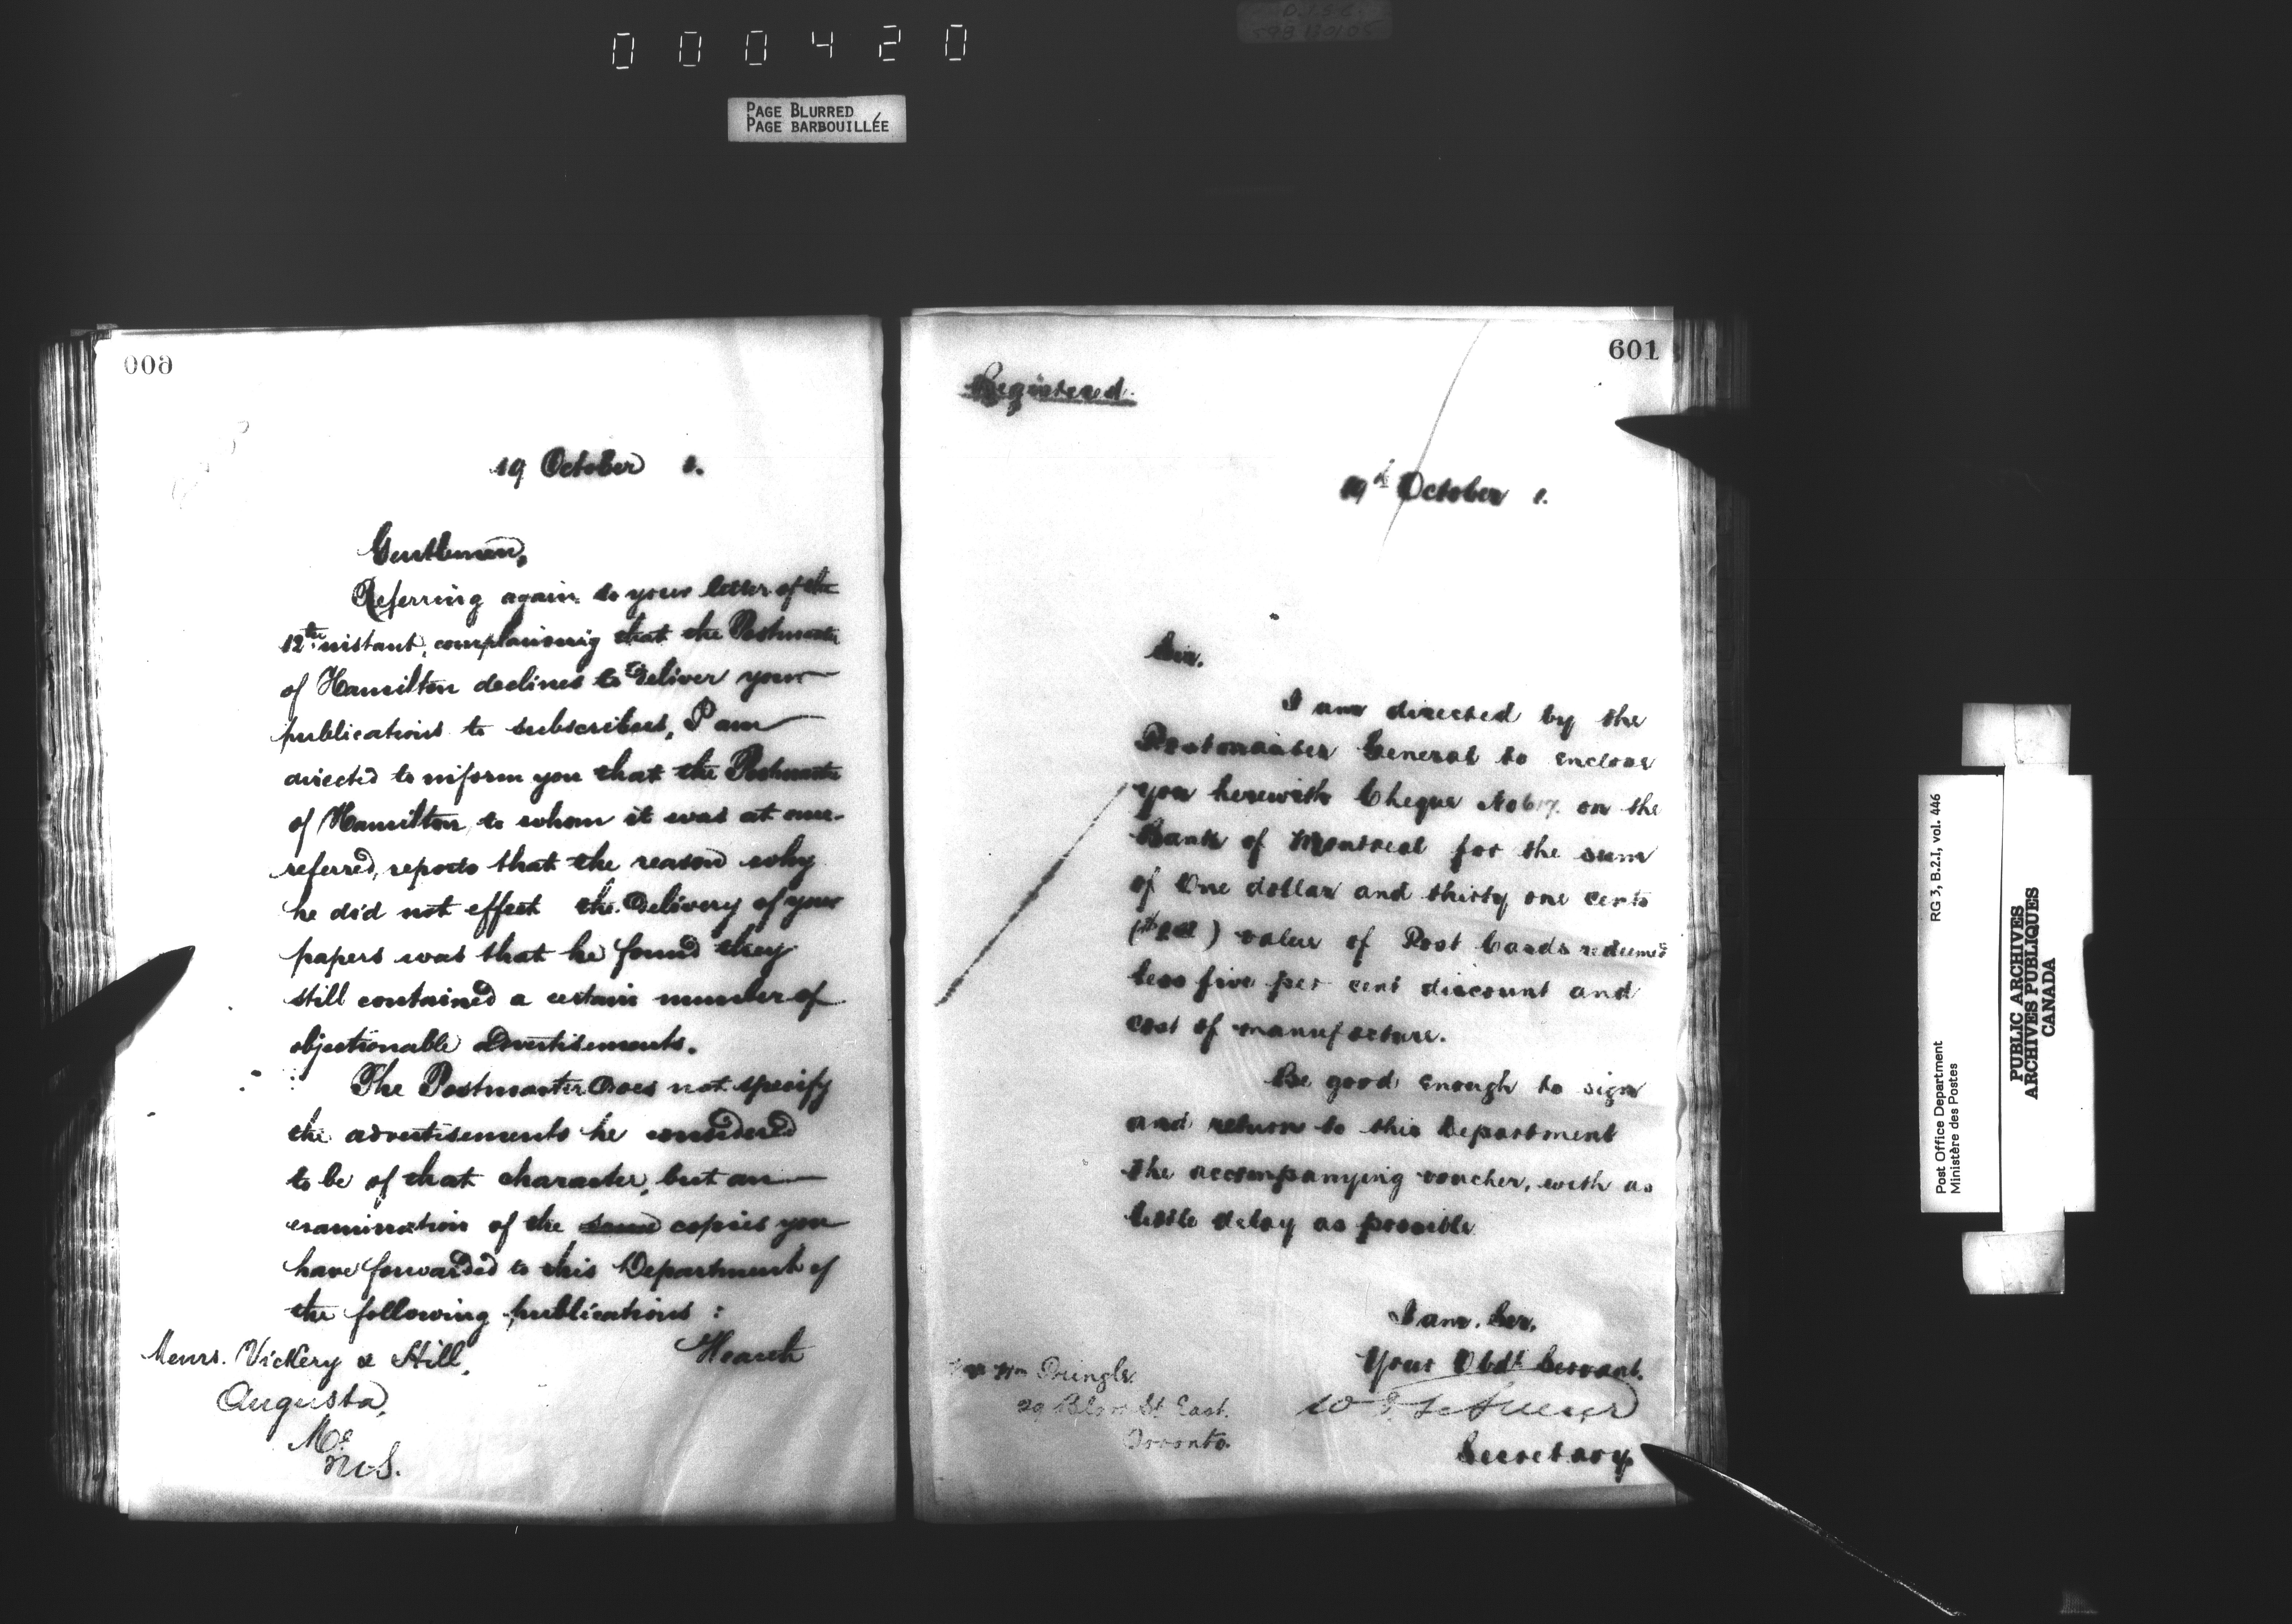 000420
PAGE BLURRED
PAGE BARBOUILLÉE
600
19 October 1.
Gentlemen,
Referring again to your letter of the
12th instant, complaining that the Postmaster
of Hamilton declines to deliver your
publications to subscribers, I am
directed to inform you that the Postmaster
of Hamilton, to whom it was at once
referred, reports that the reason why
he did not effect the delivery of your
papers was that he found they
still contained a certain number of
objectionable advertisements.
The Postmaster does not specify
the advertisements he considered
to be of that character, but an
examination of the same copies you
have forwarded to this Department of
the following publications :
Hearth
Messrs. Vickery & Hill,
Augusta,
Me
U.S.
601
Registered.
19th October 1.
Sir.
I am directed by the
Postmaster General to enclose
you herewith Cheque No 617. on the
Bank of Montreal for the sum
of One dollar and thirty one cents
) value of Post Cards redeemed
less five per cent discount and
cost of manufacture.
Be good enough to sign
and return to this Department
the accompanying voucher, with as
little delay as possible
I am, Sir,
Your Obdt Servant.
Secretary
Wm Pringle.
29 Bloor St East.
Toronto.
Post Office Department
Ministère des Postes
RG 3, B.2.I, vol. 446
PUBLIC ARCHIVES
ARCHIVES PUBLIQUES
CANADA